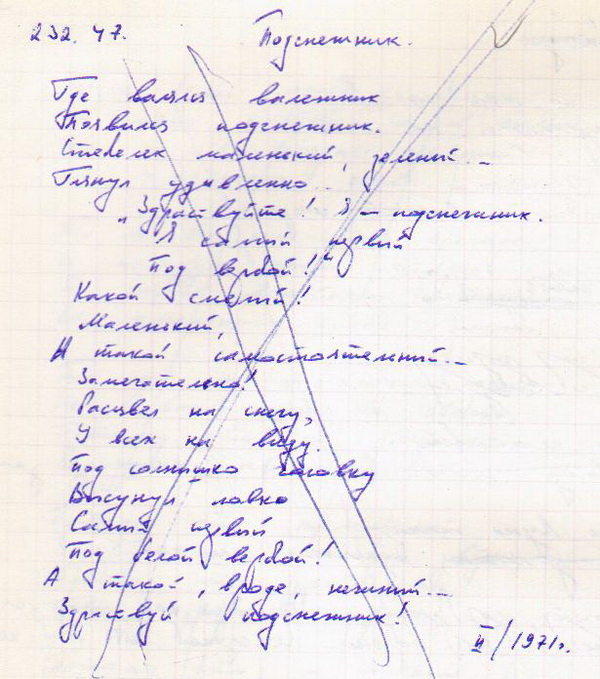 232. 47. Подснежник.
Где валялся валежник
Появился подснежник.
Стебелек маленький, зеленый...
Глянул удивленно...
"Здраствуйте! Я - подснежник.
Я самый первый
Под вербой!"
Какой смелый!
Маленький,
И такой самостоятельный...
Замечательно!
Расцвел на снегу,
У всех на виду.
Под солнышко головку
Высунул ловко
Самый первый
Под белой вербой!
А такой, вроде, нежный...
Здраствуй подснежник!
II/1971г.